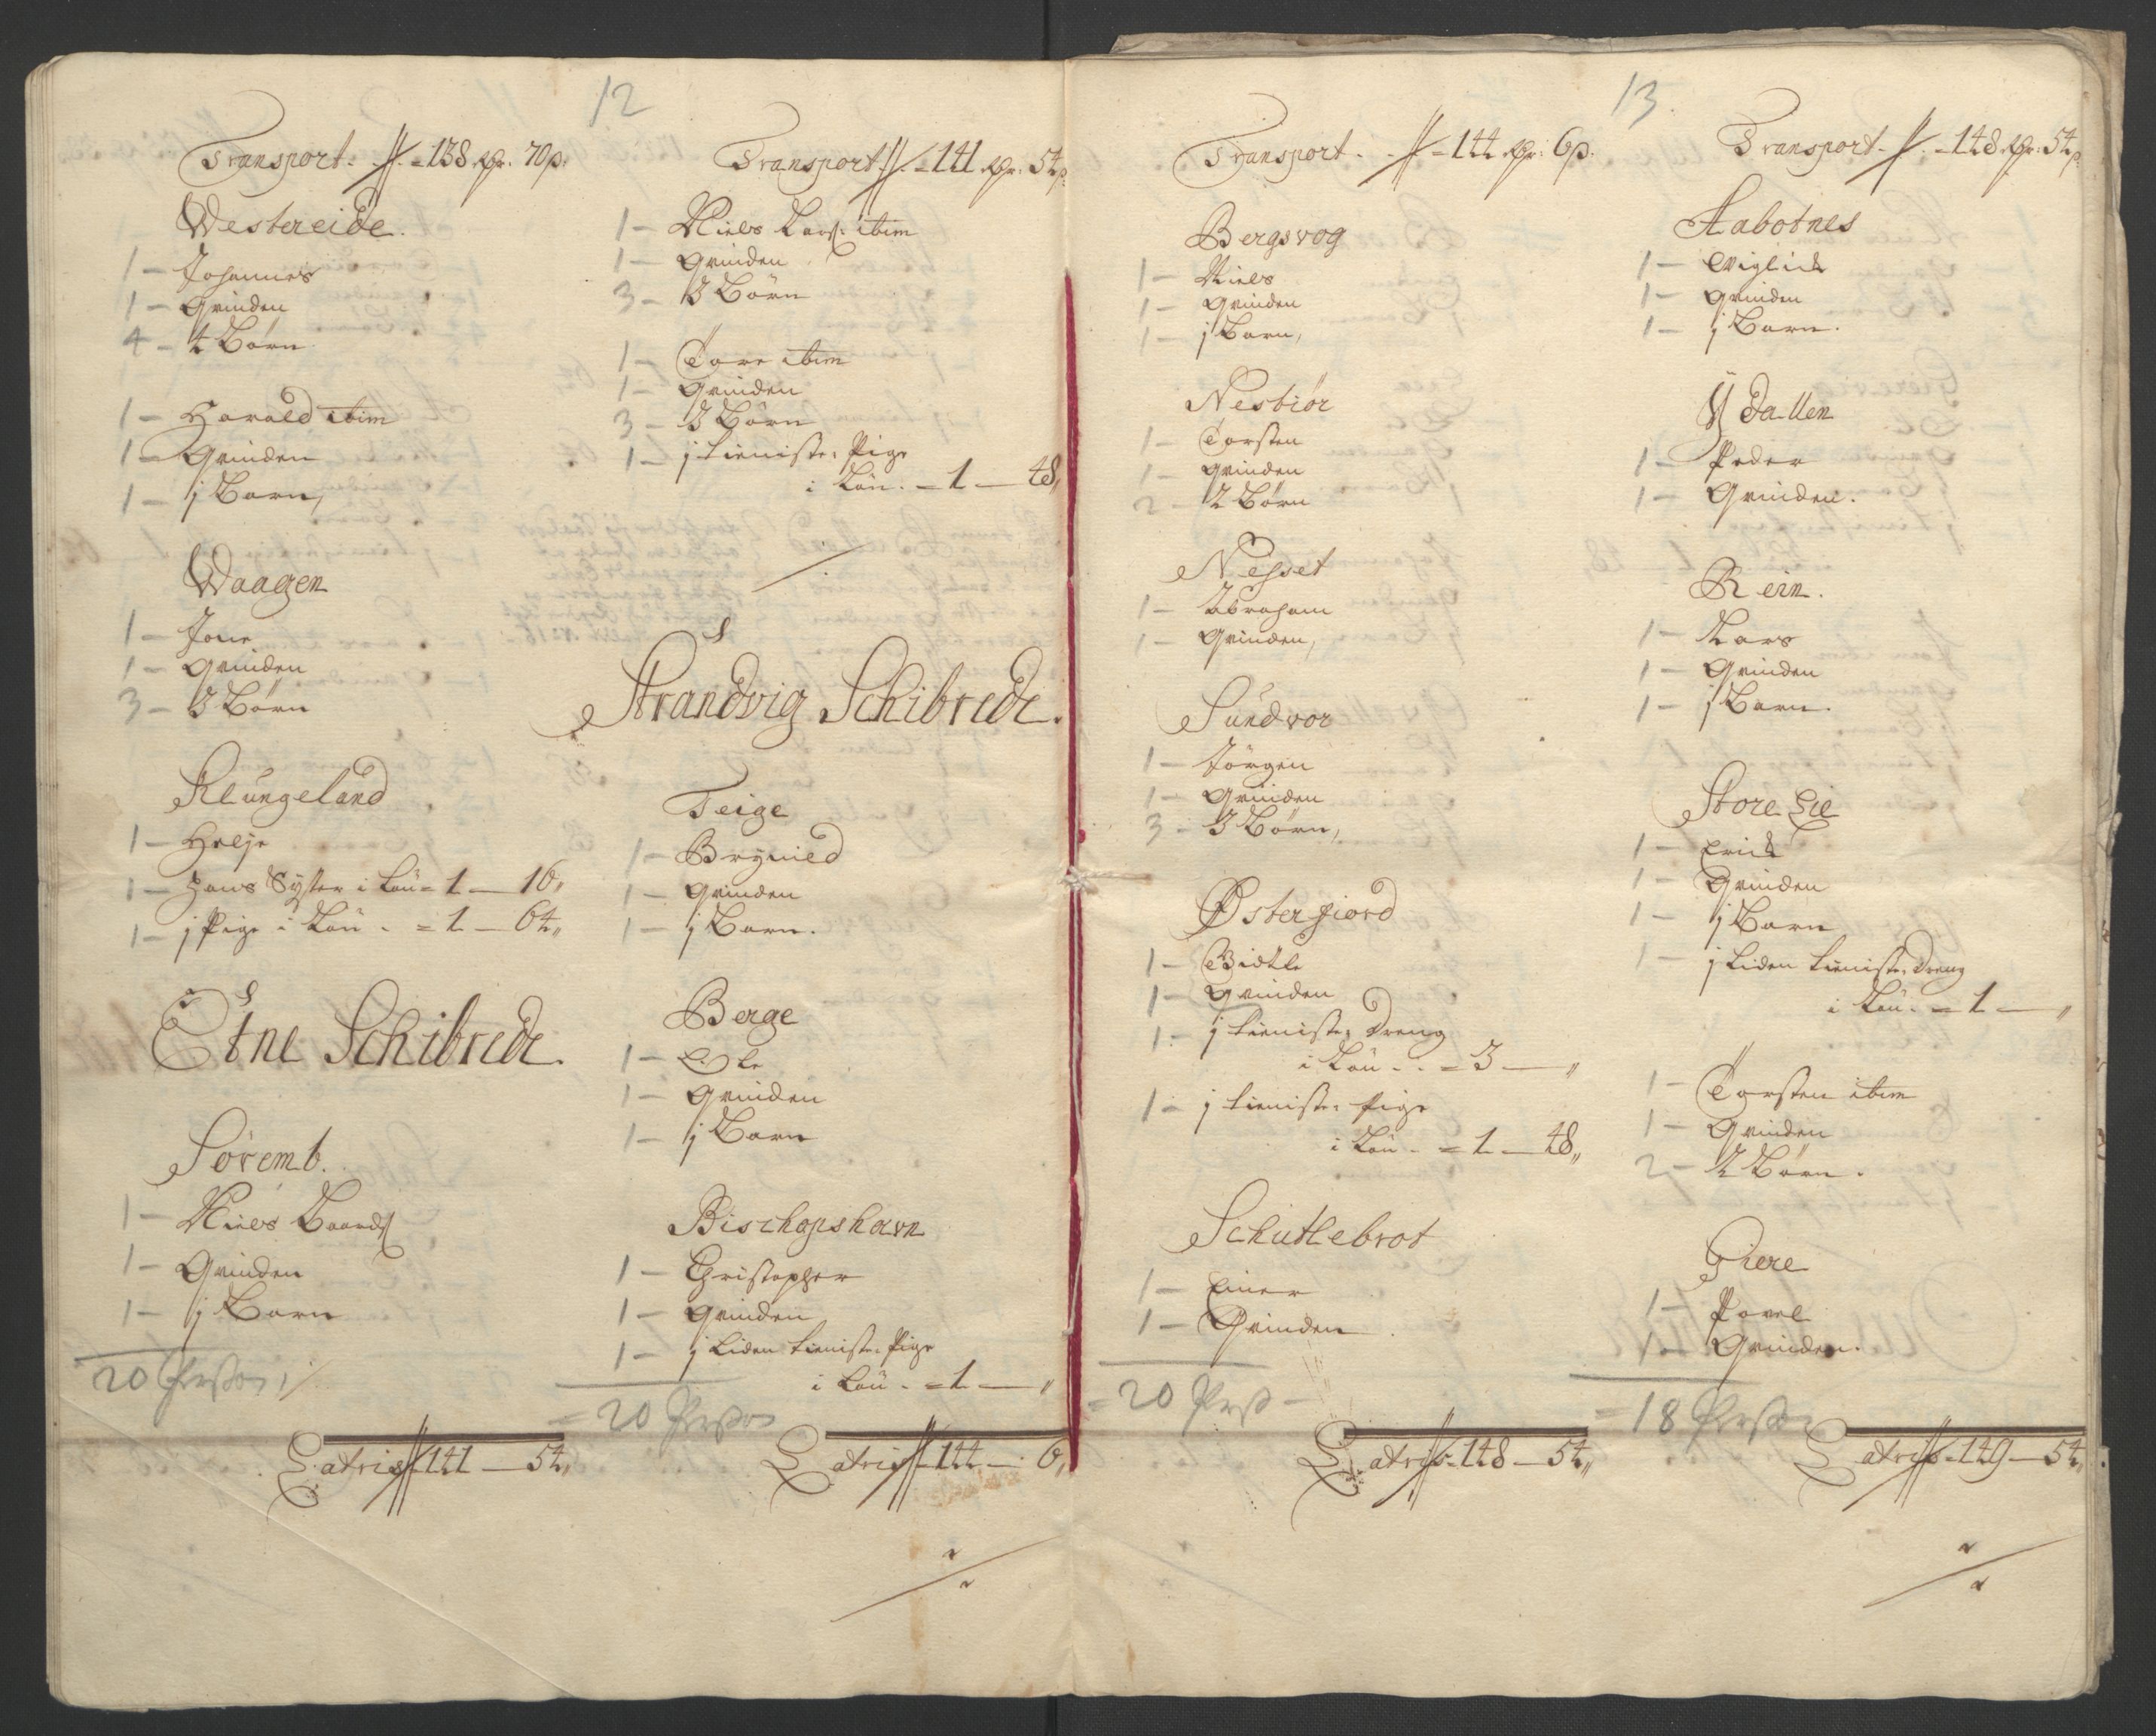 12
Transport - 138 Rdr. 70 s:
Westereide.
1 - Johannes
1 - Qvinden
4 - 4 Börn
1 - Harald ibim
1 - Qvinden
1 - j Barn,
Waagen
1 - Jone
1 - Qvinden
3 - 3 Börn
Klungeland
1 - Helje
1 - Hans Syster i Lön = 1 — 16,,
1 - j Pige i Lön - = 1 — 64,,
Etne Schibrede.
Söremb.
1 - Niels Baards
1 - Qvinden
1 - j Barn
20 Persson
Latris 141 — 54,,
Transport - 141 Rdr: 54 s
1 - Niels Lars: ibim
1 - Qvinden
3 - 3 Börn
1 - Tore ibim
1 - Qvinden
3 - 3 Börn
1 - j tieniste Pige
i Lön. = 1 — 48,,
Strandvig Schibrede.
Teige
1 - Bryniled
1 - Qvinden
1 - j Barn.
Berge
1 - Ole
1 - Qvinden
1 - j Barn
Bischopshavn
1 - Christopher
1 - Qvinden
1 - j liden tieniste Pige
i Lön - = 1 — ,,
= 20 Persson
Latris 144 — 6,,
13.
Transport - 144 Rdr: 6 s.
Bergsvog
1 - Niels
1 - Qvinden
1 - j Barn,
Nesbiör
1 - Torsten
1 - Qvinden
2 - 2 Börn
Nesset
1 - Abraham
1 - Qvinden,
Sundvor
1 - Jörgen
1 - Qvinden
3 - 3 Börn,
Østerfiord
1 - Bidtle
1 - Qvinden
1 - j tieniste Dreng
i Lön - = 3 — ,,
1 - j tieniste Pige
i Lön - = 1 — 48,,
Schutlebrot
1 - Einer
1 - Qvinden
= 20 Perss -
Latris 148 — 54,,
Transport - 148 Rdr: 54 s
Aabotnes
1 - Wiglich
1 - Qvinden
1 - j Barn.
Ydallen
1 - Peder
1 - Qvinden.
Rein.
1 - Lars
1 - Qvinden
1 - j Barn.
Store Lie
1 - Erich
1 - Qvinden
1 - j Barn
1 - j liden tieniste Dreng
i Lön. = 1 — ,,
1 - Torsten ibim
1 - Qvinden
2 - 2 Börn.
Giere
1 - Povel
1 - Qvinden.
= 18 Persson
Latris 149 — 54,,